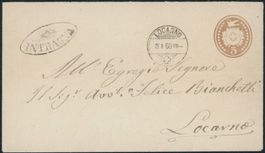 LOCARNO
5
All' Egregio Signore
Il Sig.r Avv.o Felice Bianchetti
Locarno